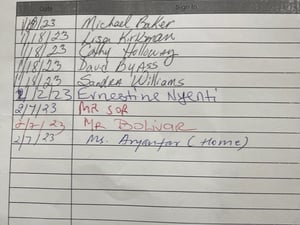 Date Sign In
1/18/23 Michael Baker
1/18/23 Lisa Kirkman
1/18/23 Cathy Holloway
1/18/23 David Byass
1/18/23 Sandra Williams
2/2/23 Ernestine Nyenti
2/7/23 MR SOR
2/7/23 MR BOLIVAR
2/7/23 Ms. Aryanfar (Home)